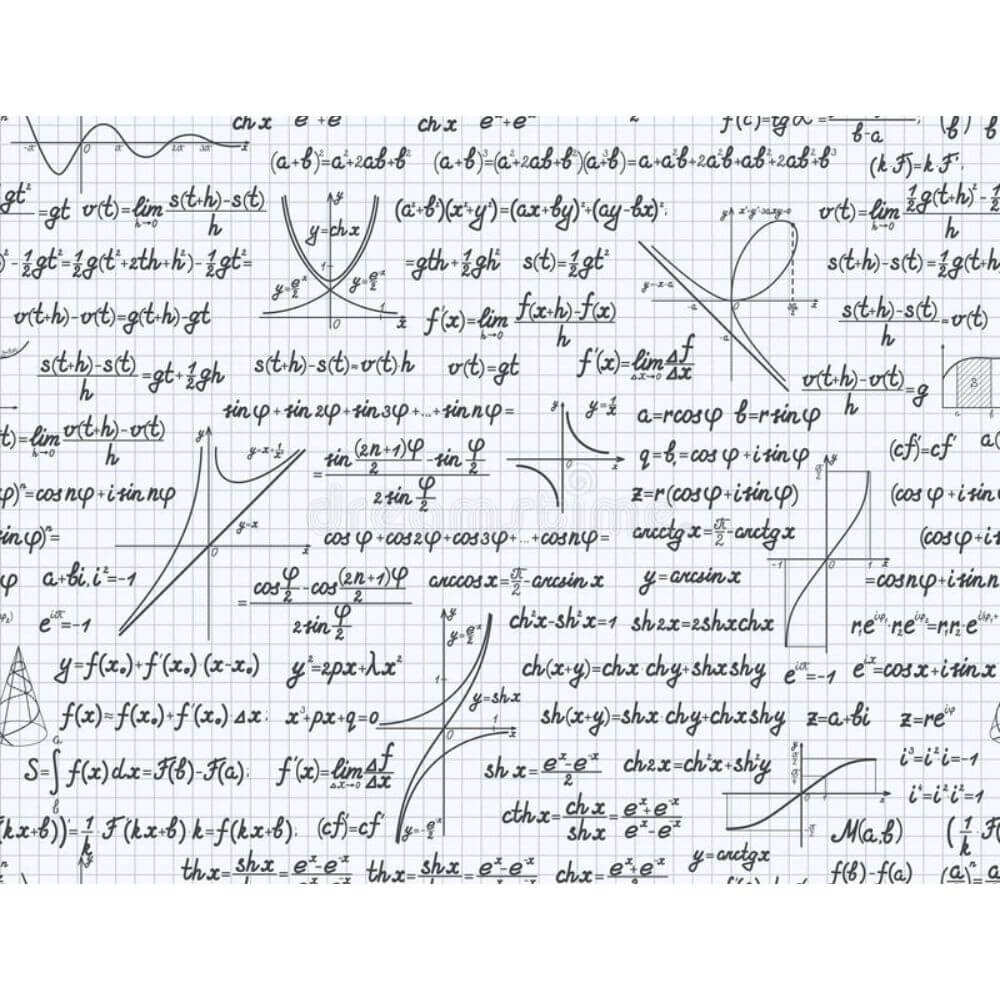 ch x e^x+e^-x ch x e^x+e^-x f'(c)=tgα= b-a
(a+b)²=a²+2ab+b² (a+b)³=(a²+2ab+b²)(a+b)=a³+a²b+2a²b+ab²+2ab²+b³ (k F)'=k F';
gt²=gt v(t)=lim h→0 s(t+h)-s(t)/h (a²+b²)(x²+y²)=(ax+by)²+(ay-bx)²; v(t)=lim h→0 ½g(t+h)²-½/h
y=ch x
)²-½gt²=½g(t²+2th+h²)-½gt²= =gth+½gh² s(t)=½gt² s(t+h)-s(t)=½g(t+h
y=e^-x/2 y=e^x/2 y=-x-a
v(t+h)-v(t)=g(t+h)-gt f'(x)=lim h→0 f(x+h)-f(x)/h s(t+h)-s(t)/h≈v(t)
s(t+h)-s(t)/h=gt+½gh s(t+h)-s(t)≈v(t)h v(t)=gt f'(x)=lim Δx→0 Δf/Δx v(t+h)-v(t)/h=g S
sin φ+sin 2φ+sin 3φ+...+sin nφ= y=1/x a=r cos φ b=r sin φ
t)=lim h→0 v(t+h)-v(t)/h y=x+1/x² =sin (2n+1)φ/2-sin φ/2 / 2 sin φ/2 q=b,=cos φ+i sin φ (cf)'=cf' a(
φ)ⁿ=cos nφ+i sin nφ y=x z=r(cos φ+i sin φ) (cos φ+i sin
sin φ)ⁿ= cos φ+cos 2φ+cos 3φ+...+cos nφ= arcctg x=π/2-arctg x (cos φ+i
φ a+bi, i²=-1 =cos φ/2-cos (2n+1)φ/2 / 2 sin φ/2 arccos x=π/2-arcsin x y=arcsin x =cos nφ+i sin n
e^iπ=-1 y=e^-x/2 ch²x-sh²x=1 sh 2x=2sh x ch x r₁e^iφ₁·r₂e^iφ₂=r₁r₂e^iφ₁+
y=f(x₀)+f'(x₀)(x-x₀) y²=2px+λx² ch(x+y)=ch x ch y+sh x sh y e^iπ=-1 e^ix=cos x+i sin x
y=sh x
f(x)≈f(x₀)+f'(x₀)Δx; x³+px+q=0 sh(x+y)=sh x ch y+ch x sh y z=a+bi z=re^iφ
S=∫ f(x)dx=F(b)-F(a); f'(x)=lim Δx→0 Δf/Δx sh x=e^x-e^-x/2 ch 2x=ch²x+sh²y i³=i²i=-i
i⁴=i²i²=1
(kx+b))'=1/k F'(kx+b) k=f(kx+b); (cf)'=cf' y=-e^-x/2 cth x=ch x/sh x=e^x+e^-x/e^x-e^-x M(a,b) (1/k F(
y=arctg x
th x=sh x/=e^x-e^-x th x=sh x/=e^x-e^-x ch x=e^x+e^-x f(b)-f(a) (a)ⁿ=a